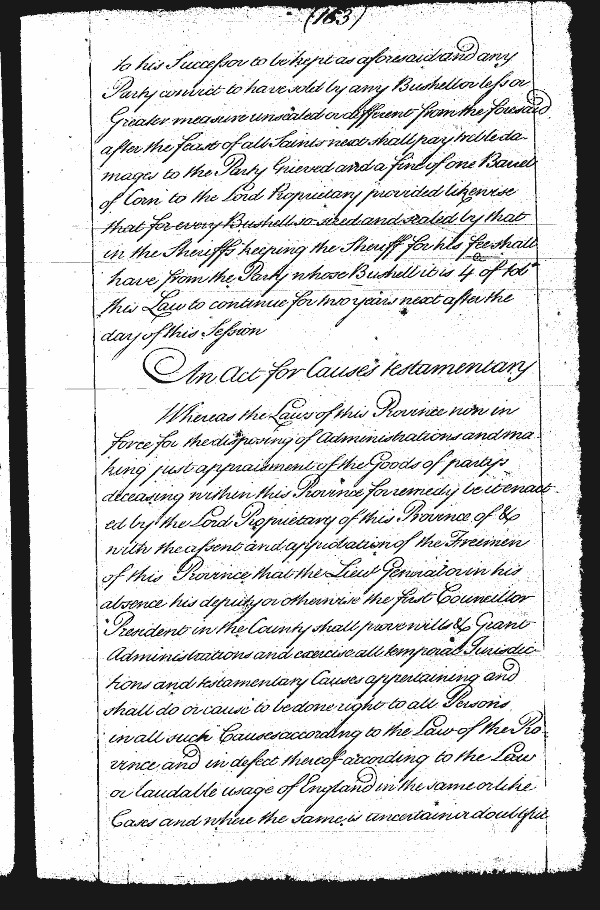 (163)
to his Successor to be kept as aforesaid and any
Party convict to have sold by any Bushell or less or
Greater measure unsealed or different from the foresaid
after the feast of all Saints next shall pay treble da-
mages to the Party Grieved and a fine of one Barrel
of Corn to the Lord Proprietary provided likewise
that for every Bushell so sized and sealed by that
in the Sheriffs keeping the Sheriff for his fee shall
have from the Party whose Bushell it is 4 of tobo
this Law to continue for two years next after the
day of this Session
An Act for Causes testamentary
Whereas the Laws of this Province now in
force for the disposing of Administrations and ma-
king just appraisment of the Goods of partys
deceasing within this Province for remedy be it enact-
ed by the Lord Proprietary of this Province of &c
with the assent and approbation of the Freemen
of this Province that the Lieut General or in his
absence his deputy or otherwise the first Councillor
President in the County shall prove wills & Grant
Administrations and exercise all temporal Jurisdic-
tions and testamentary Causes appertaining and
shall do or cause to be done right to all Persons
in all such Causes according to the Law of the Pro
vince and in defect thereof according to the Law
or laudable usage of England in the same or like
Cases and where the same is uncertain or doubtfull